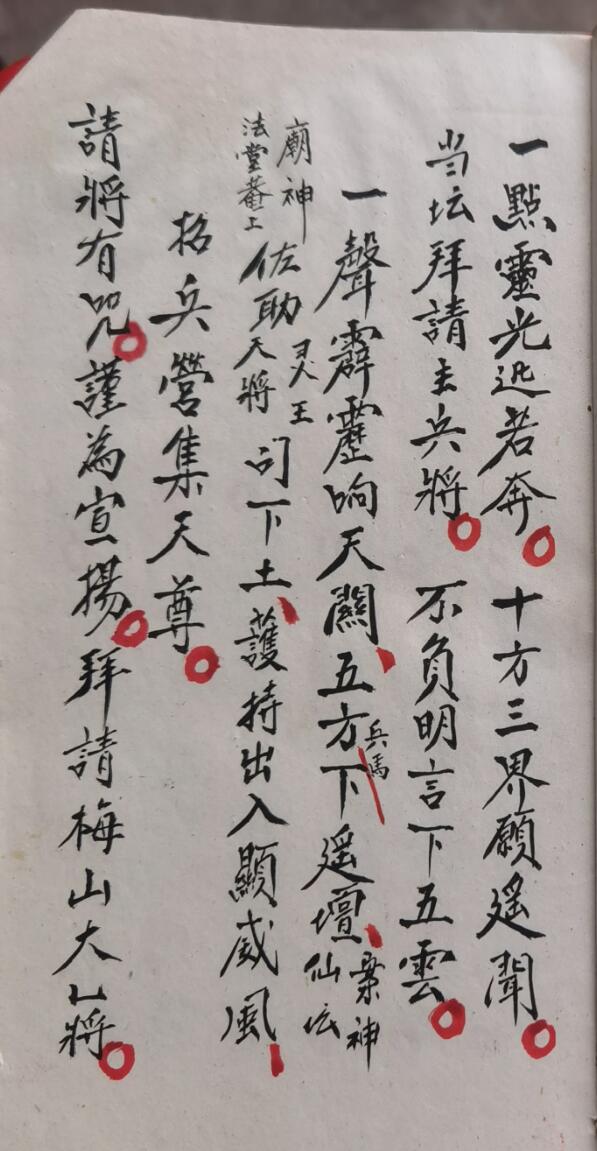 一點靈光迅若奔十方三界願遥聞
当坛拜請主兵將不負明言下五雲
一聲霹靂响天關五方下遥壇
兵馬
案神
仙坛
廟神
法堂菴上
佐助
灵王
天將
司下土護持出入顯威風
招兵營集天尊
請將有咒謹為宣揚拜請梅山大乚將